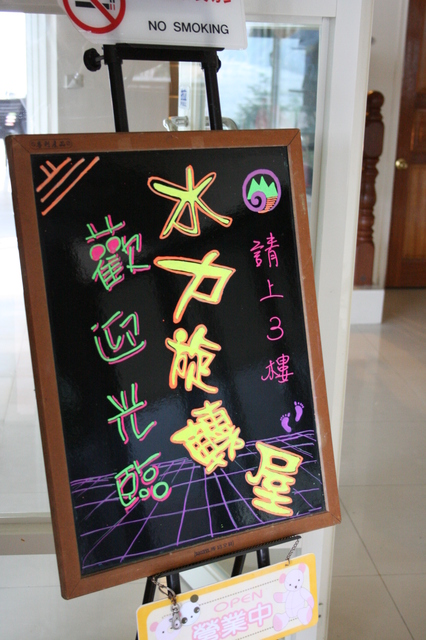 NO SMOKING
請上3樓
水力旋轉屋
歡迎光臨
OPEN
營業中